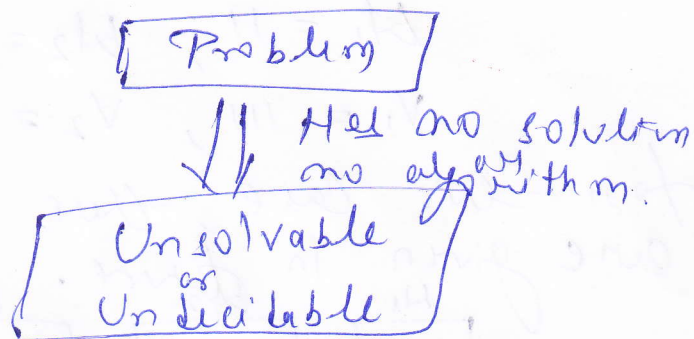 Problem
Has no solution
or
no algorithm.
Unsolvable
or
Undecidable